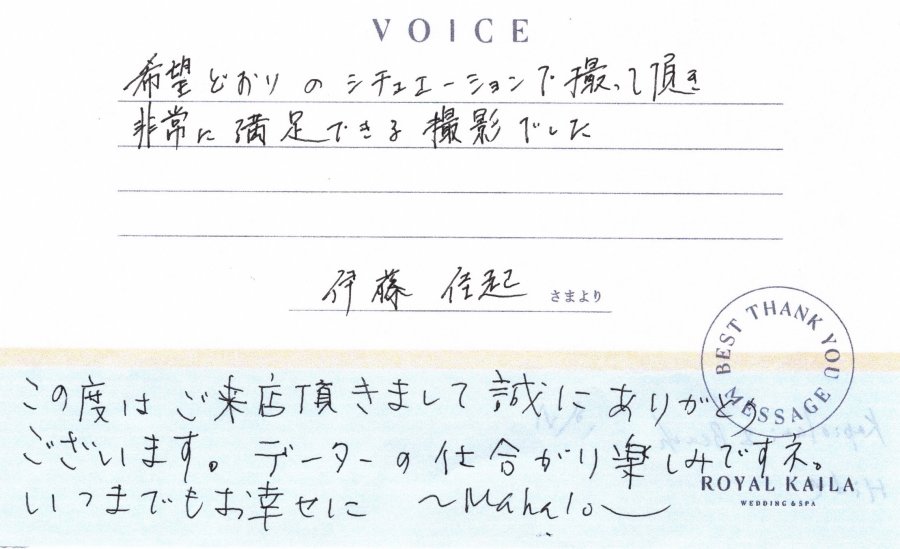 VOICE
希望どおりのシチュエーションで撮って頂き
非常に満足できる撮影でした
伊藤 佳起 さまより
BEST THANK YOU MESSAGE
この度はご来店頂きまして誠にありがとう
ございます。データーの仕合がり楽しみですネ。
いつまでもお幸せに ～Mahalo～
ROYAL KAILA
WEDDING & SPA